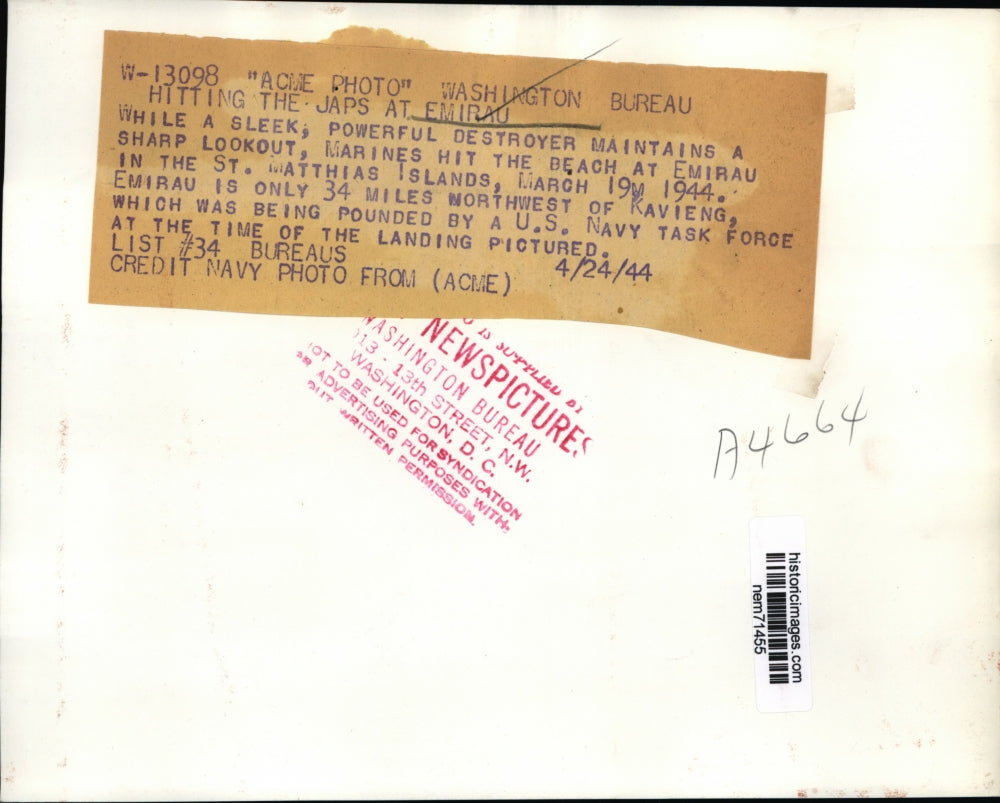 W-13098 "ACME PHOTO" WASHINGTON BUREAU
HITTING THE JAPS AT EMIRAU
WHILE A SLEEK, POWERFUL DESTROYER MAINTAINS A
SHARP LOOKOUT, MARINES HIT THE BEACH AT EMIRAU
IN THE ST. MATTHIAS ISLANDS, MARCH 19, 1944.
EMIRAU IS ONLY 34 MILES NORTHWEST OF KAVIENG,
WHICH WAS BEING POUNDED BY A U.S. NAVY TASK FORCE
AT THE TIME OF THE LANDING PICTURED.
LIST #34 BUREAUS 4/24/44
CREDIT NAVY PHOTO FROM (ACME)
IS SUPPLIED BY
NEWSPICTURES
WASHINGTON BUREAU
13th STREET, N.W.
WASHINGTON, D. C.
NOT TO BE USED FOR SYNDICATION
OR ADVERTISING PURPOSES WITH-
OUT WRITTEN PERMISSION.
A4664
historicimages.com
nem71455